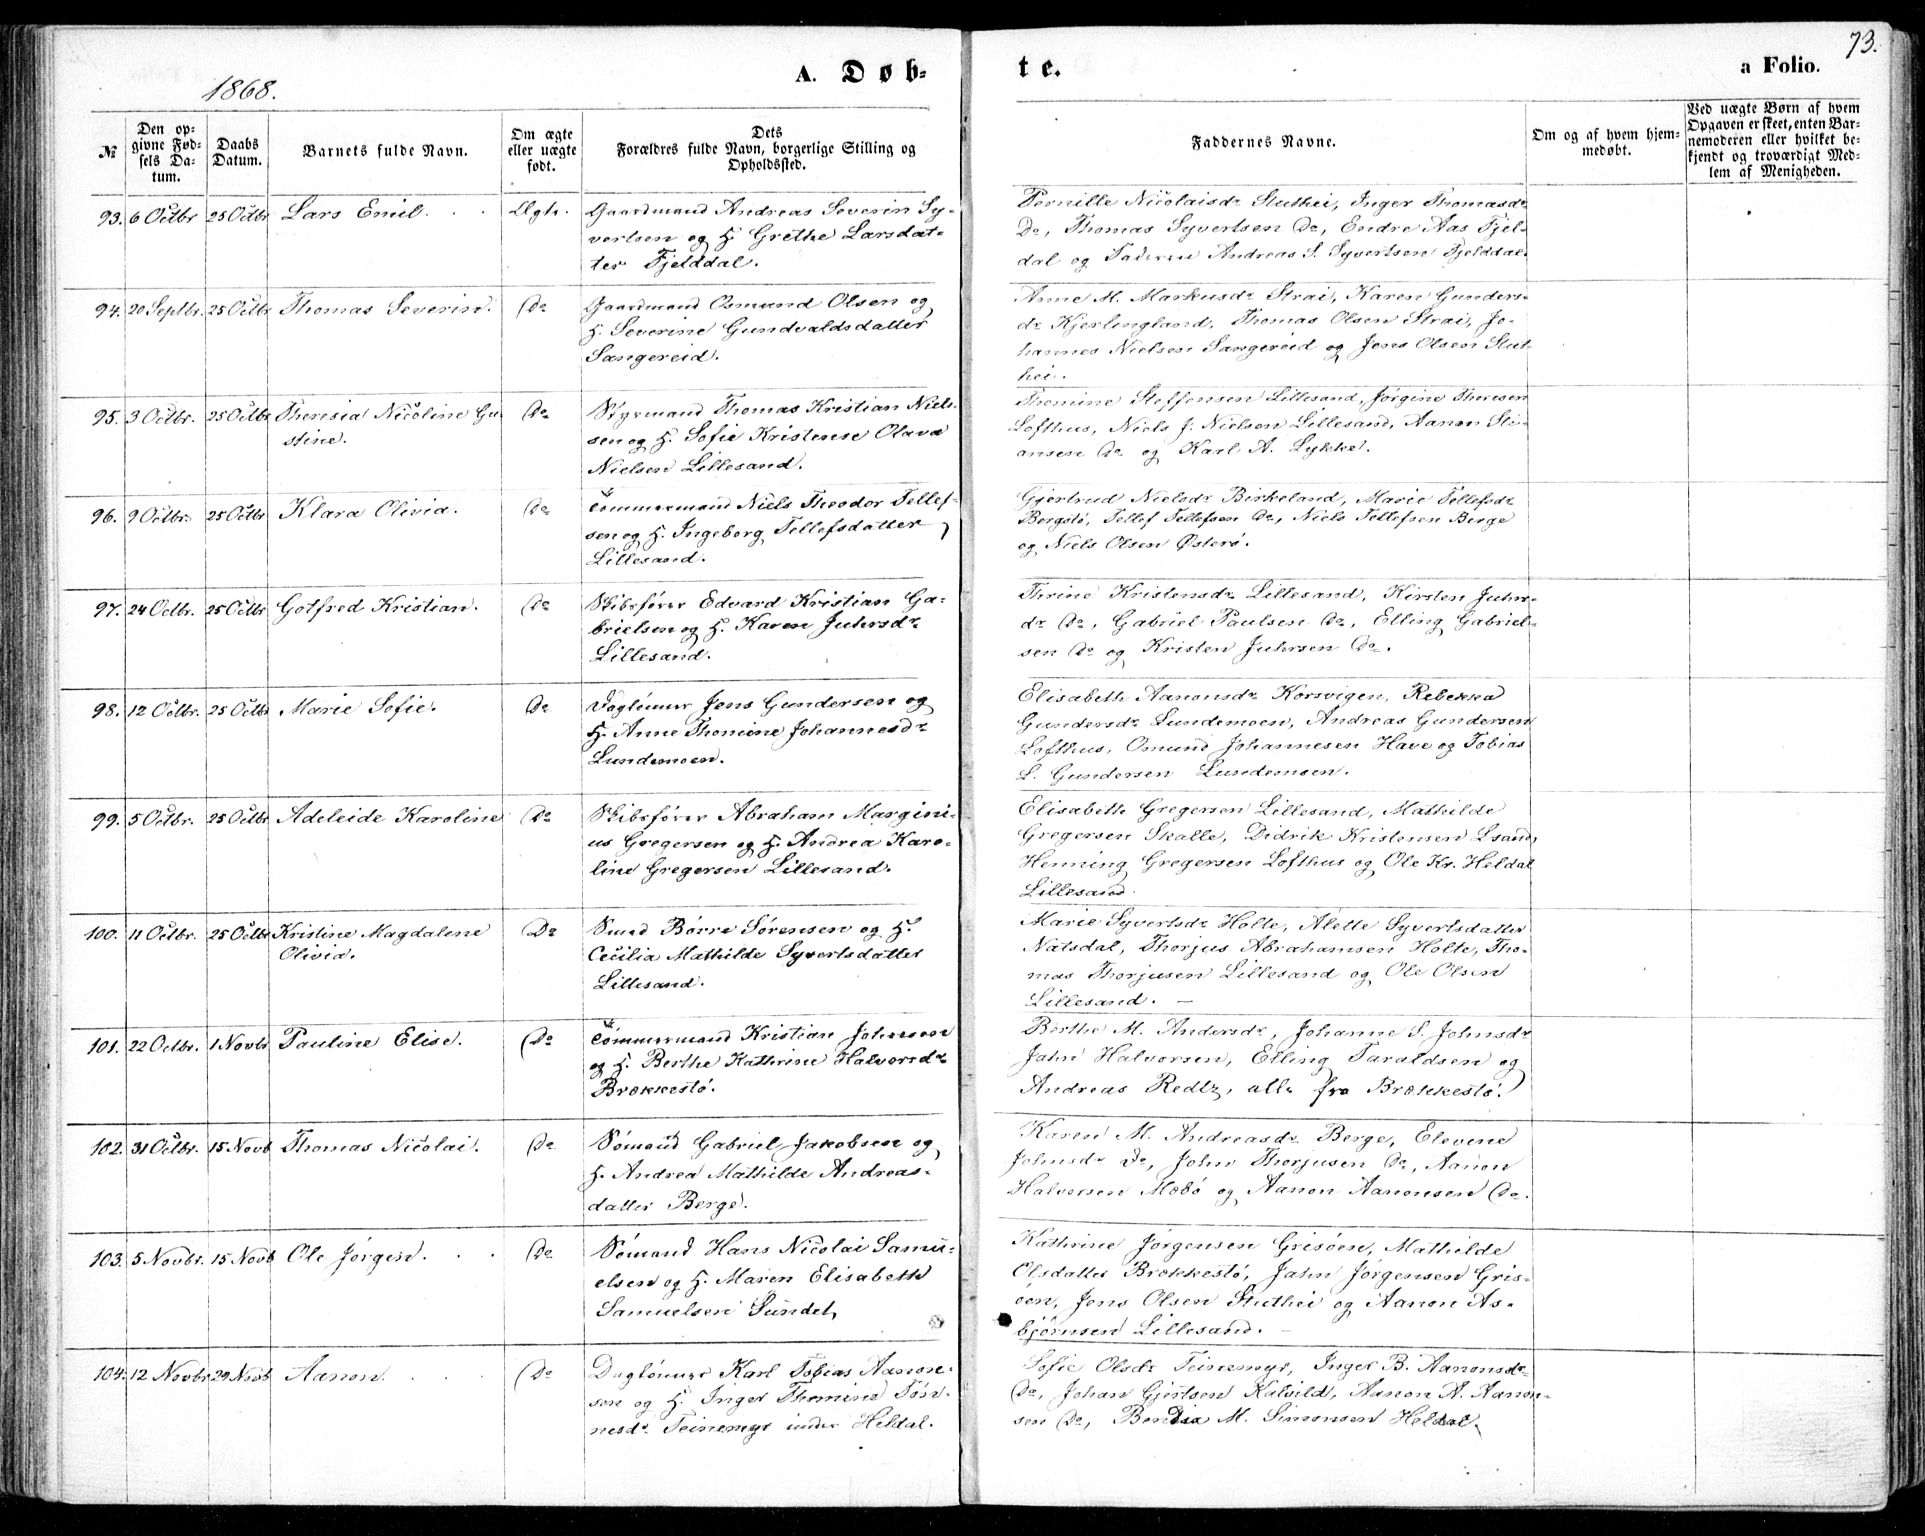 73.
1868.
A. Døb-
te.
a Folio.
№
Den op-
givne Fød-
sels Da-
tum.
Daabs
Datum.
Barnets fulde Navn.
Om ægte
eller uægte
født.
Dets
Forældres fulde Navn, borgerlige Stilling og
Opholdssted.
Faddernes Navne.
Om og af hvem hjem-
medøbt.
Ved uægte Børn af hvem
Opgaven er skeet, enten Bar-
nemoderen eller hvilket be-
kjendt og troværdigt Med-
lem af Menigheden.
93. 6 Octbr 25 Octbr Lars Emil. Ægte.
Gaardmand Andreas Severin Sy-
vertsen og H. Grethe Larsdat-
ter Fjelddal.
Pernille Nicolaisdr Stuthei, Inger Thomasdr
Do, Thomas Syvertsen Do, Endre Aas Fjel-
dal og Faderen Andreas S. Syvertsen Fjelddal.
94. 20 Septbr. 25 Octbr Thomas Severin. Do
Gaardmand Osmund Olsen og
H. Severine Gundvaldsdatter
Sangereid.
Anne M. Markusdr Strai, Karen Gunders-
dr Kjerlingland, Thomas Olsen Strai, Jo-
hannes Nielsen Sangereid og Jens Olsen Stut-
hei.
95. 3 Octbr. 25 Octbr Theresia Nicoline Gu-
stine. Do
Styrmand Thomas Kristian Niel-
sen og H. Sofie Kristense Olava
Nielsen Lillesand.
Thomine Steffensen Lillesand, Jørgine Theresen
Lofthus, Niels J. Nielsen Lillesand, Aanon Sti-
ansen Do og Karl A. Lykke.
96. 9 Octbr. 25 Octbr Klara Olivia. Do
Tømmermand Niels Theodor Tellef-
sen og H. Ingeborg Tellefsdatter
Lillesand.
Gjertrud Nielsdr Birkeland, Marie Tellefsdr
Bergstø, Tellef Tellefsen Do, Niels Tellefsen Berge
og Niels Olsen Østerø.
97. 24 Octbr. 25 Octbr Gotfred Kristian. Do
Skibsfører Edvard Kristian Ga-
brielsen og H. Karen Juhrsdr
Lillesand.
Thrine Kristensdr Lillesand, Kirsten Juhrs-
dr Do, Gabriel Paulsen Do, Elling Gabriel-
sen Do og Kristen Juhrsen Do.
98. 12 Octbr. 25 Octbr Marie Sofie. Do
Daglønner Jens Gundersen og
H. Anne Thomine Johannesdr
Lundemoen.
Elisabeth Aanonsdr Korsvigen, Rebekka
Gundersdr Lundemoen, Andreas Gundersen
Lofthus, Osmund Johannesen Have og Tobias
L. Gundersen Lundemoen.
99. 5 Octbr. 25 Octbr. Adeleide Karoline Do
Skibsfører Abraham Margini-
us Gregersen og H. Andrea Karo-
line Gregersen Lillesand.
Elisabeth Gregersen Lillesand, Mathilde
Gregersen Skalle, Didrik Kristensen Lsand,
Henning Gregersen Lofthus og Ole Kr. Heldal
Lillesand.
100. 11 Octbr. 25 Octbr Kristine Magdalene
Olivia. Do
Smed Børre Sørensen og H.
Cecilia Mathilde Syvertsdatter
Lillesand.
Marie Syvertsdr Holte, Alette Syvertsdatter
Natsdal, Thorjus Abrahamsen Holte, Tho-
mas Thorjusen Lillesand og Ole Olsen
Lillesand. —
101. 22 Octbr. 1 Novbr Pauline Elise. Do
Tømmermand Kristian Johnsen
og H. Berthe Kathrine Halvorsdr
Brækkestø.
Berthe M. Andersdr, Johanne S. Johnsdr
Jahn Halvorsen, Elling Taraldsen og
Andreas Redtz, alle fra Brækkestø.
102. 31 Octbr. 15 Novb Thomas Nicolai. Do
Sømand Gabriel Jakobsen og
H. Andrea Mathilde Andreas-
datter Berge.
Karen M. Andreasdr Berge, Elevine
Johnsdr Do, John Thorjusen Do, Aanon
Halvorsen Mæbø og Aanon Aanonsen Do.
103. 5 Novbr. 15 Novb Ole Jørgen. Do
Sømand Hans Nicolai Samu-
elsen og H. Maren Elisabeth
Samuelsen Sundet,
Kathrine Jørgensen Grisøen, Mathilde
Olsdatter Brækkestø, Jahn Jørgensen Gris-
øen, Jens Olsen Stuthei og Aanon As-
bjørnsen Lillesand. —
104. 12 Novbr 29 Novb Aanon. Do
Daglønner Karl Tobias Aanon-
sen og H. Inger Thomine Tøn-
nesdr Teinemyr under Heldal.
Sofie Olsdr Teinemyr, Inger B. Aanonsdr
Do, Johan Gjertsen Kalvild, Aanon A. Aanon-
sen Do, Bendix M. Simonsen Heldal.